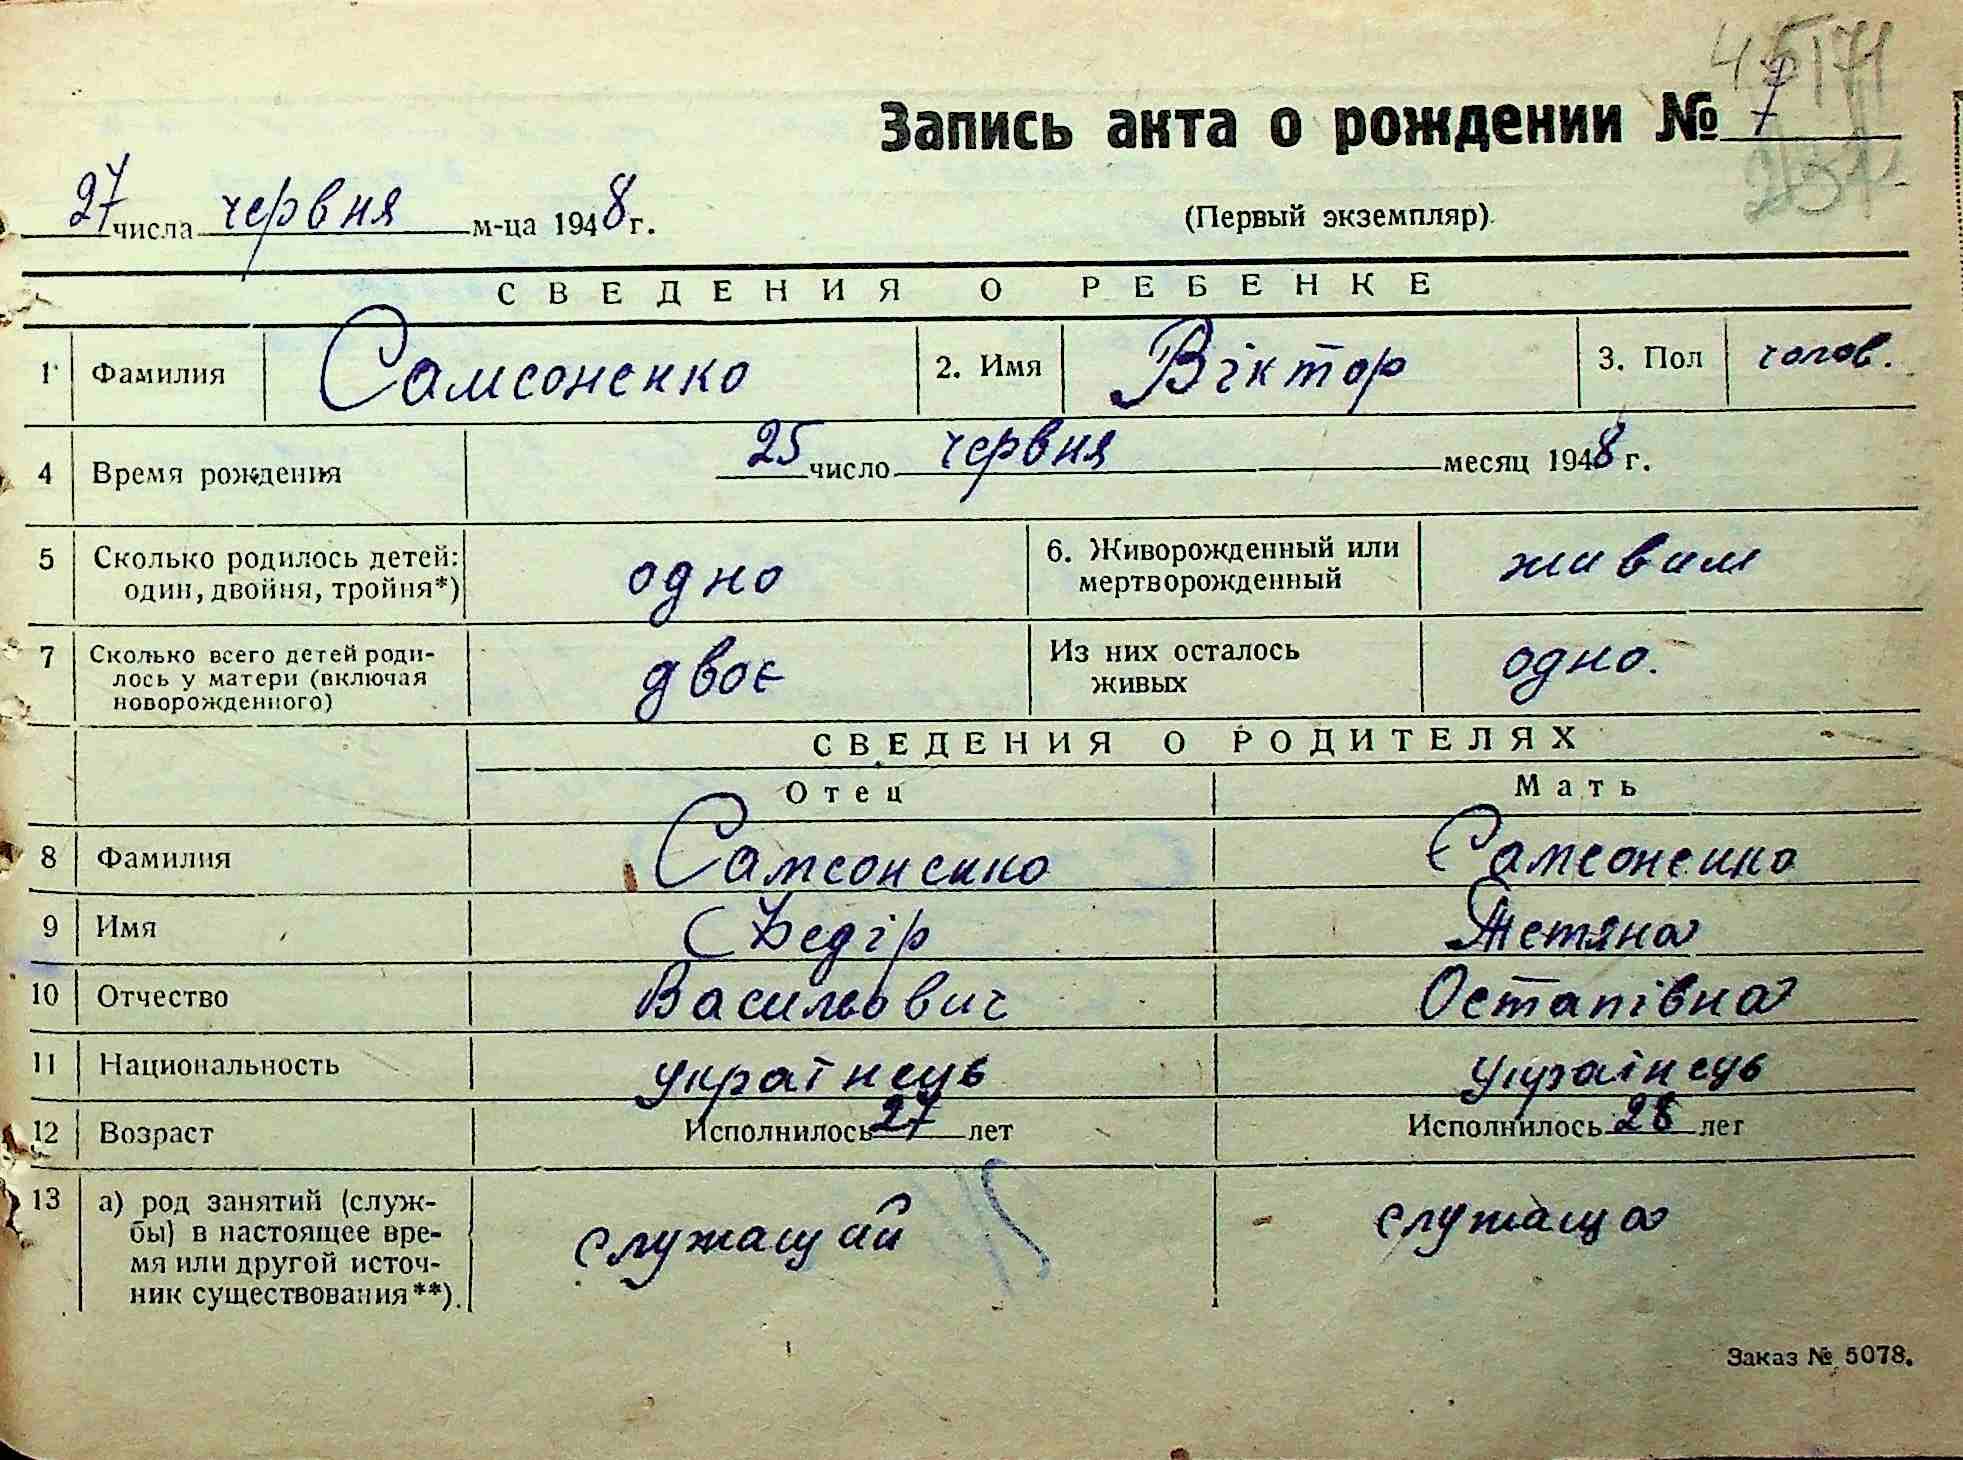 Запись акта о рождении № 7
27 числа червня м-ца 1948 г.
(Первый экземпляр).
СВЕДЕНИЯ О РЕБЕНКЕ
1 Фамилия Самсоненко 2. Имя Віктор 3. Пол чолов.
4 Время рождения 25 число червня месяц 1948 г.
5 Сколько родилось детей: один, двойня, тройня*) одно 6. Живорожденный или мертворожденный живим
7 Сколько всего детей родилось у матери (включая новорожденного) двоє Из них осталось живых одно.
СВЕДЕНИЯ О РОДИТЕЛЯХ
Отец Мать
8 Фамилия Самсоненко Самсоненко
9 Имя Федір Тетяна
10 Отчество Васильович Остапівна
11 Национальность українець українець
12 Возраст Исполнилось 27 лет Исполнилось 28 лет
13 а) род занятий (службы) в настоящее время или другой источник существования**). служащий служаща
Заказ № 5078.